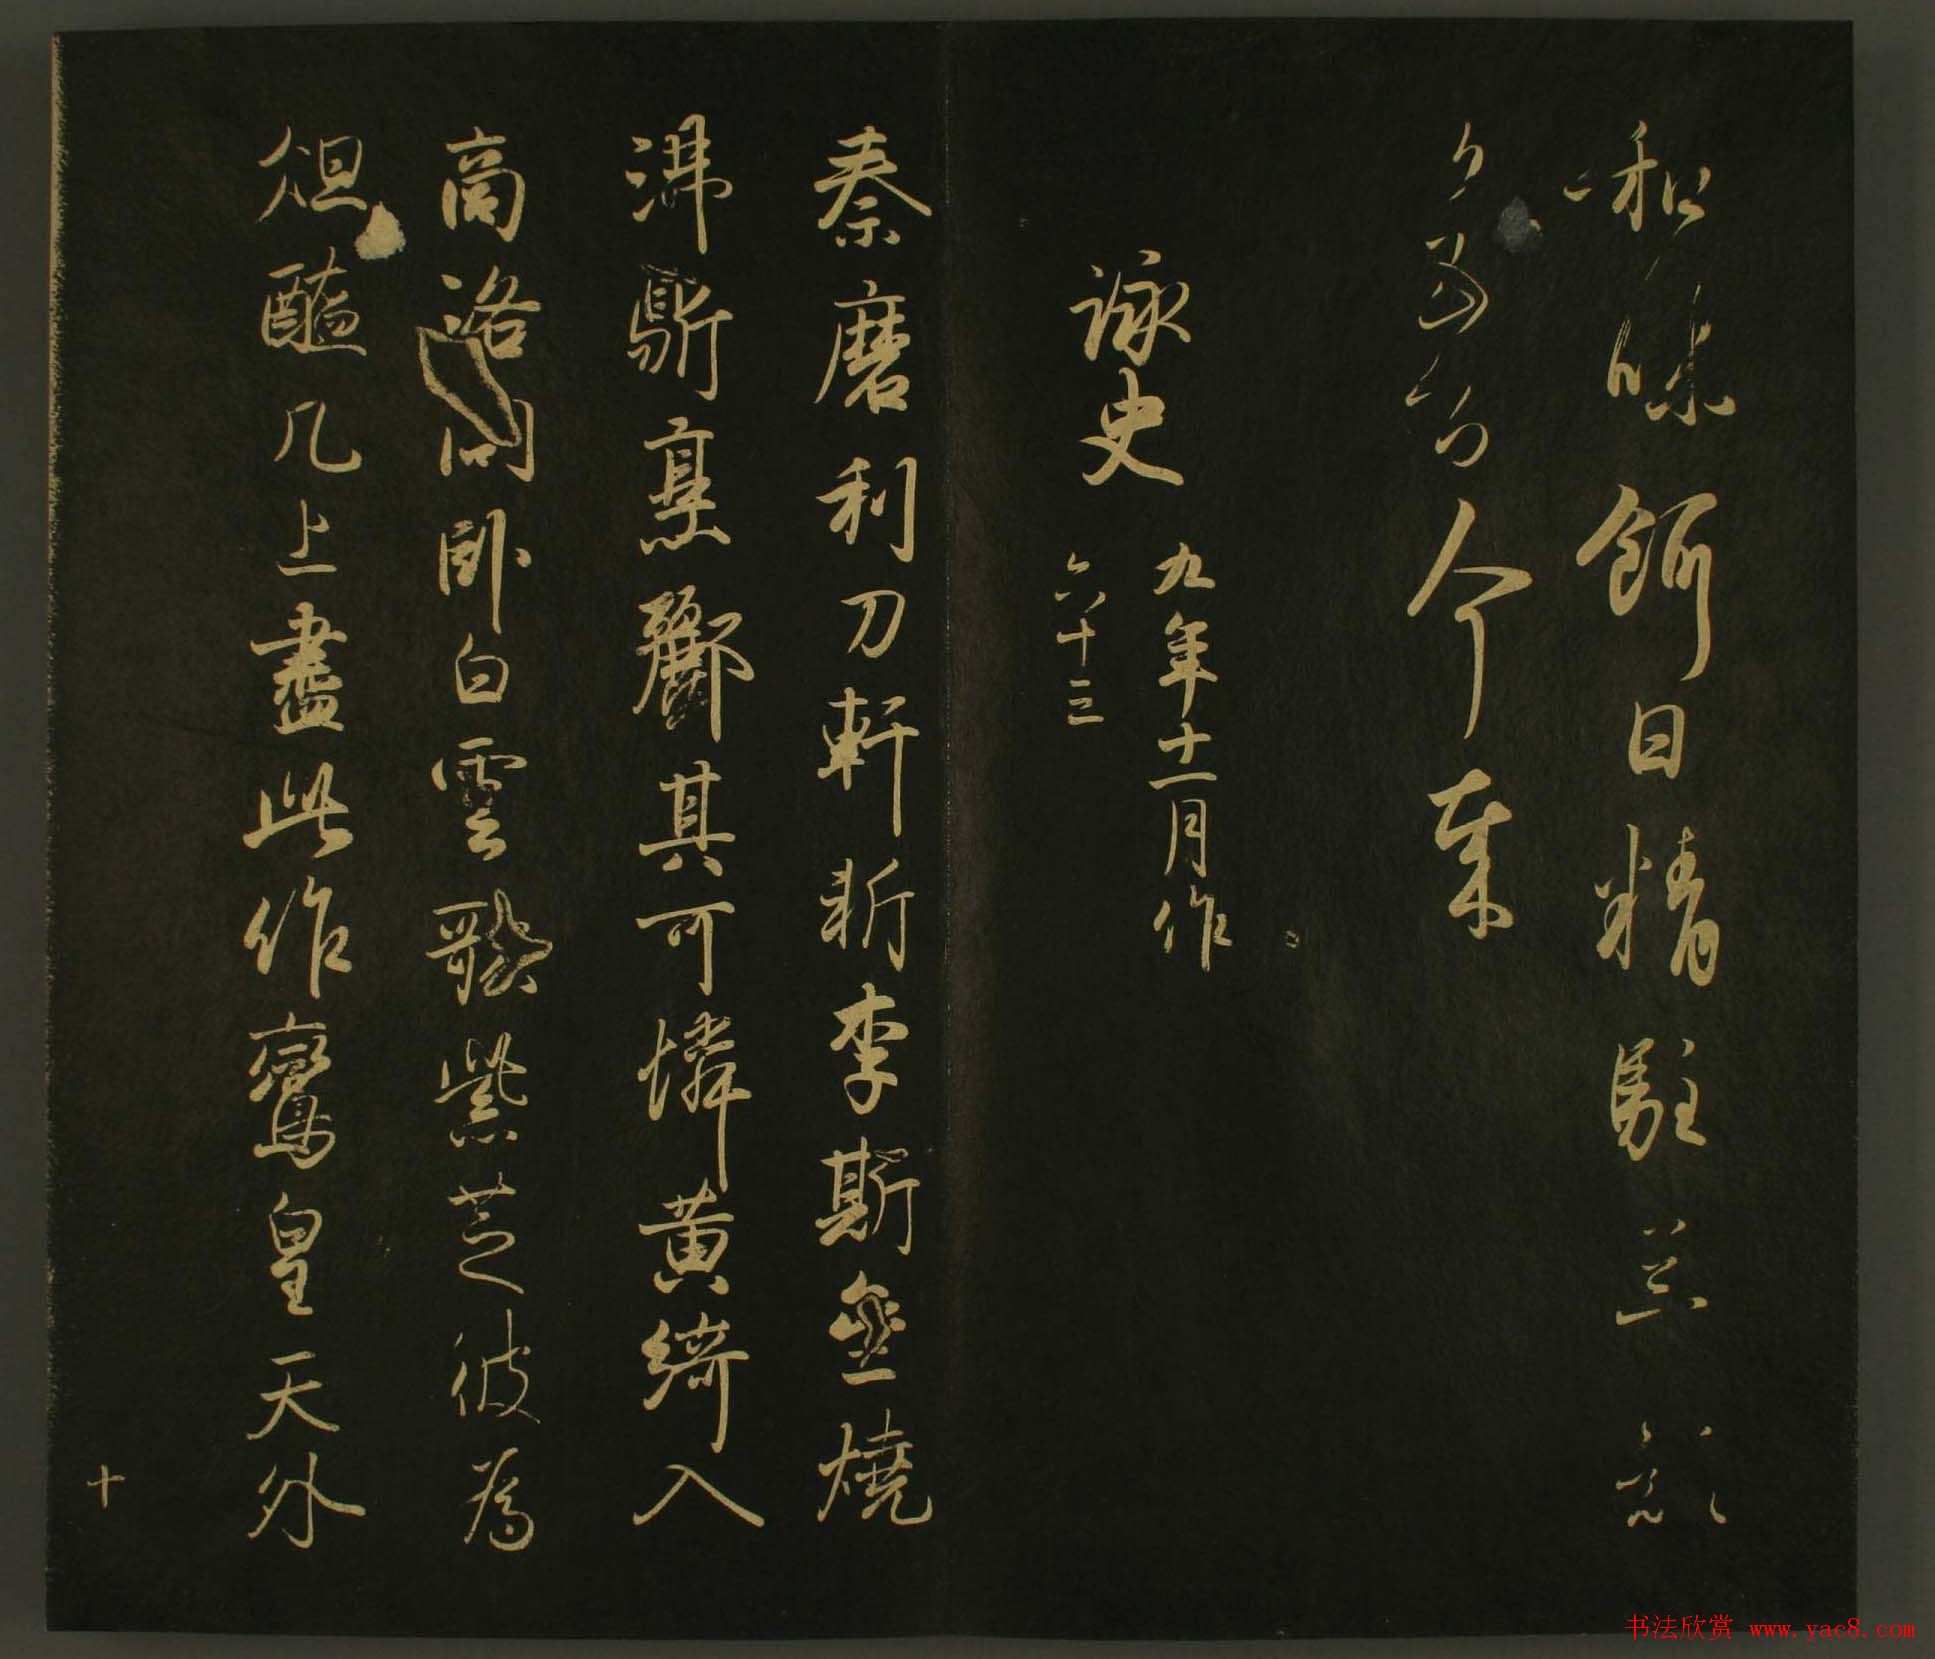 味餌日精駐
今
詠史
九年十一月作
六十三
秦磨利刀軒斬李斯齊燒
沸烹酈其可憐黃綺入
商洛間卧白雲歌紫芝彼為
俎醢几上盡此作鸞皇天外
十
书法欣赏 www.yac8.com